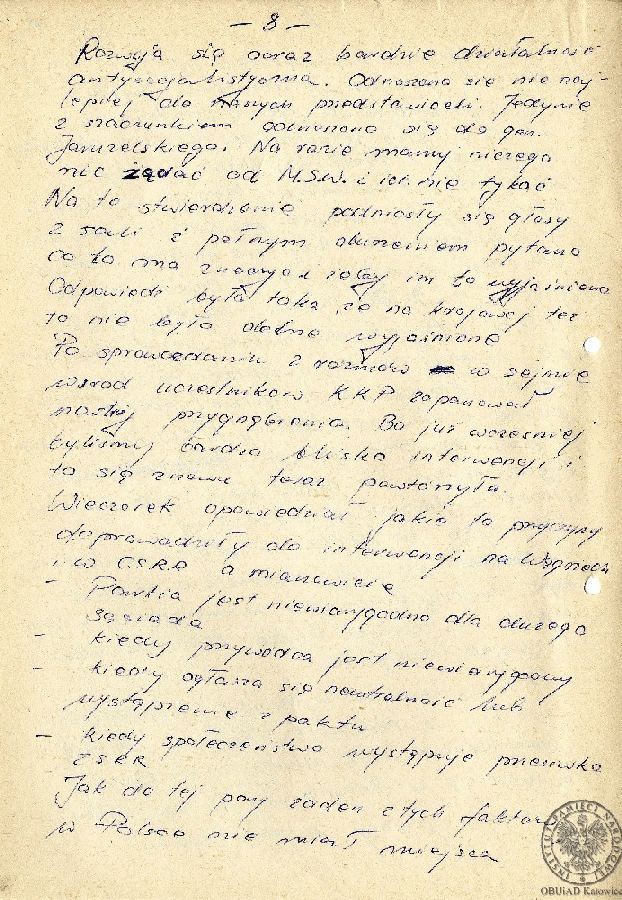 - 8 -
Rozwija się coraz bardzie działalność
antysocjalistyczna. Odnoszono się nie naj-
lepiej do naszych przedstawicieli. Jedynie
z szacunkiem odnoszono się do gen.
Jaruzelskiego. Na razie mamy niczego
nie żądać od M.S.W. i ich nie tykać
Na to stwierdzenie podniosły się głosy
z sali i z pełnym oburzeniem pytano
co to ma znaczyć i żeby im to wyjaśniono
Odpowiedź była taka, że na krajowej też
to nie było dokładnie wyjaśnione
Po sprawozdaniu z rozmów w sejmie
wśród uczestników KKP zapanował
nastrój przygnębienia. Bo już wcześniej
byliśmy bardzo blisko interwencji i
to się znowu teraz powtórzyło
Wieczorek opowiedział jakie to przyczyny
doprowadziły do interwencji na Węgrzech
i w CSRS a mianowicie
- Partia jest niewiarygodna dla dużego
sąsiada
- kiedy przywódca jest niewiarygodny
- kiedy ogłasza się neutralność lub
wystąpienie z paktu
- kiedy społeczeństwo występuje przeciwko
ZSRR
Jak do tej pory żaden z tych faktów
w Polsce nie miał miejsca
INSTYTUT PAMIĘCI NARODOWEJ
OBUiAD Katowice